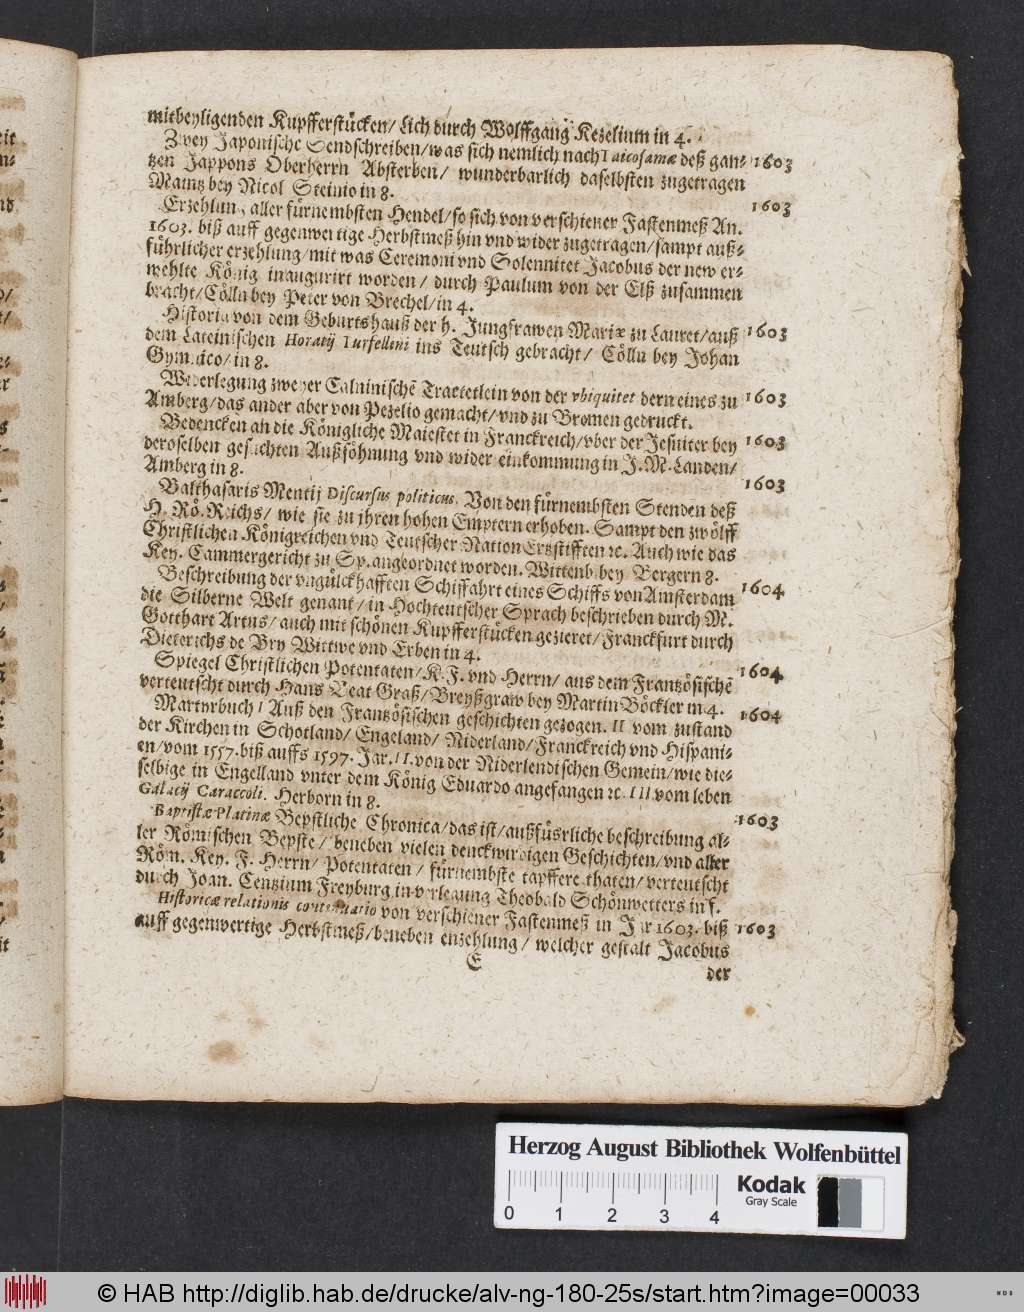 mitbeyligenden Kupfferstücken/ Lich durch Wolffgang Kezelium in 4.
Zwey Japonische Sendschreiben/was sich nemlich nach Taicosamæ deß gan- 1603
tzen Jappons Oberherrn Absterben/ wunderbarlich daselbsten zugetragen
Maintz bey Nicol Steinio in 8.
Erzehlung aller fürnembsten Hendel/so sich von verschiener Fastenmeß An. 1603
1603. biß auff gegenwertige Herbstmeß hin vnd wider zugetragen/sampt auß-
führlicher erzehlung/mit was Ceremoni vnd Solennitet Jacobus der new er-
wehlte König inaugurirt worden/ durch Paulum von der Elß zusammen
bracht/Cölln bey Peter von Brechel/in 4.
Historia von dem Geburtshauß der h. Jungfrawen Mariæ zu Lauret/auß 1603
dem Lateinischen Horatij Turfellini ins Teutsch gebracht/ Cölln bey Johan
Gymnico/in 8.
Widerlegung zweyer Caluinischē Tractetlein von der vbiquitet dern eines zu 1603
Amberg/das ander aber von Pezelio gemacht/vnd zu Bremen gedruckt.
Bedencken an die Königliche Maiestet in Franckreich/vber der Jesuiter bey 1603
deroselben gesuchten Außsöhnung vnd wider einkommung in J. M. Landen/
Amberg in 8.
Balthasaris Mentij Discursus politicus. Von den fürnembsten Stenden deß 1603
H. Rö. Reichs/ wie sie zu ihren hohen Emptern erhoben. Sampt den zwölff
Christlichen Königreichen vnd Teutscher Nation Ertzstifften ꝛc. Auch wie das
Key. Cammergericht zu Sp. angeordnet worden. Wittenb. bey Bergern 8.
Beschreibung der vngülckhafften Schiffahrt eines Schiffs von Amsterdam 1604
die Silberne Welt genant/in Hochteutscher Sprach beschrieben durch M.
Gotthart Artus/auch mit schönen Kupfferstücken gezieret/Franckfurt durch
Dieterichs de Bry Wittwe vnd Erben in 4.
Spiegel Christlichen Potentaten/K. F. vnd Herrn/ aus dem Frantzösischē 1604
verteutscht durch Hans Beat Graß/Breyßgraw bey Martin Böckler in 4.
Martyrbuch I Auß den Frantzösischen geschichten gezogen. II vom zustand 1604
der Kirchen in Schotland/ Engeland/ Niderland/Franckreich vnd Hispani-
en/vom 1557. biß auffs 1597. Jar. II. von der Niderlendischen Gemein/wie die-
selbige in Engelland vnter dem König Eduardo angefangen ꝛc. III vom leben
Galacij Caraccoli. Herborn in 8.
Baptistæ Platinæ Bepstliche Chronica/das ist/außfüsrliche beschreibung al- 1603
ler Römischen Bepste/ beneben vielen denckwirdigen Geschichten/vnd aller
Röm. Key. F. Herrn/ Potentaten/ fürnembste tapffere thaten/verteutscht
durch Joan. Centzium Freyburg in verlegung Theobald Schönwetters in f.
Historicæ relationis continuatio von verschiener Fastenmeß in Jar 1603. biß 1603
auff gegenwertige Herbstmeß/beneben enzehlung/ welcher gestalt Jacobus
E
der
Herzog August Bibliothek Wolfenbüttel
0 1 2 3 4
Kodak
Gray Scale
© HAB http://diglib.hab.de/drucke/alv-ng-180-25s/start.htm?image=00033